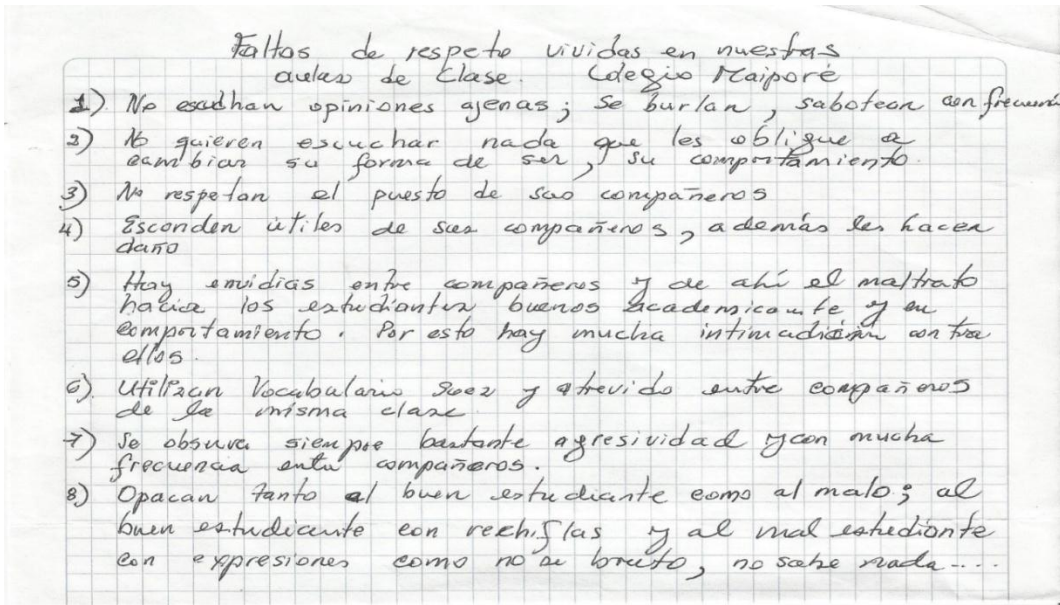 Faltas de respeto vividas en nuestras
aulas de clase. Colegio Maiporé
1) No escuchan opiniones ajenas; se burlan, sabotean con
2) No quieren escuchar nada que les obligue a
cambiar su forma de ser, su comportamiento.
3) No respetan el puesto de sus compañeros
4) Esconden útiles de sus compañeros, además les hacen
daño
5) Hay envidias entre compañeros y de ahí el maltrato
hacia los estudiantes buenos y en
comportamiento. Por esto hay mucha contra
ellos.
6). Utilizan Vocabulario soez y atrevido entre compañeros
de la misma clase.
7) Se observa siempre bastante agresividad y con mucha
frecuencia entre compañeros.
8) Opacan tanto al buen estudiante como al malo; al
buen estudiante con rechiflas y al mal estudiante
con expresiones como no se bruto, no sabe nada....